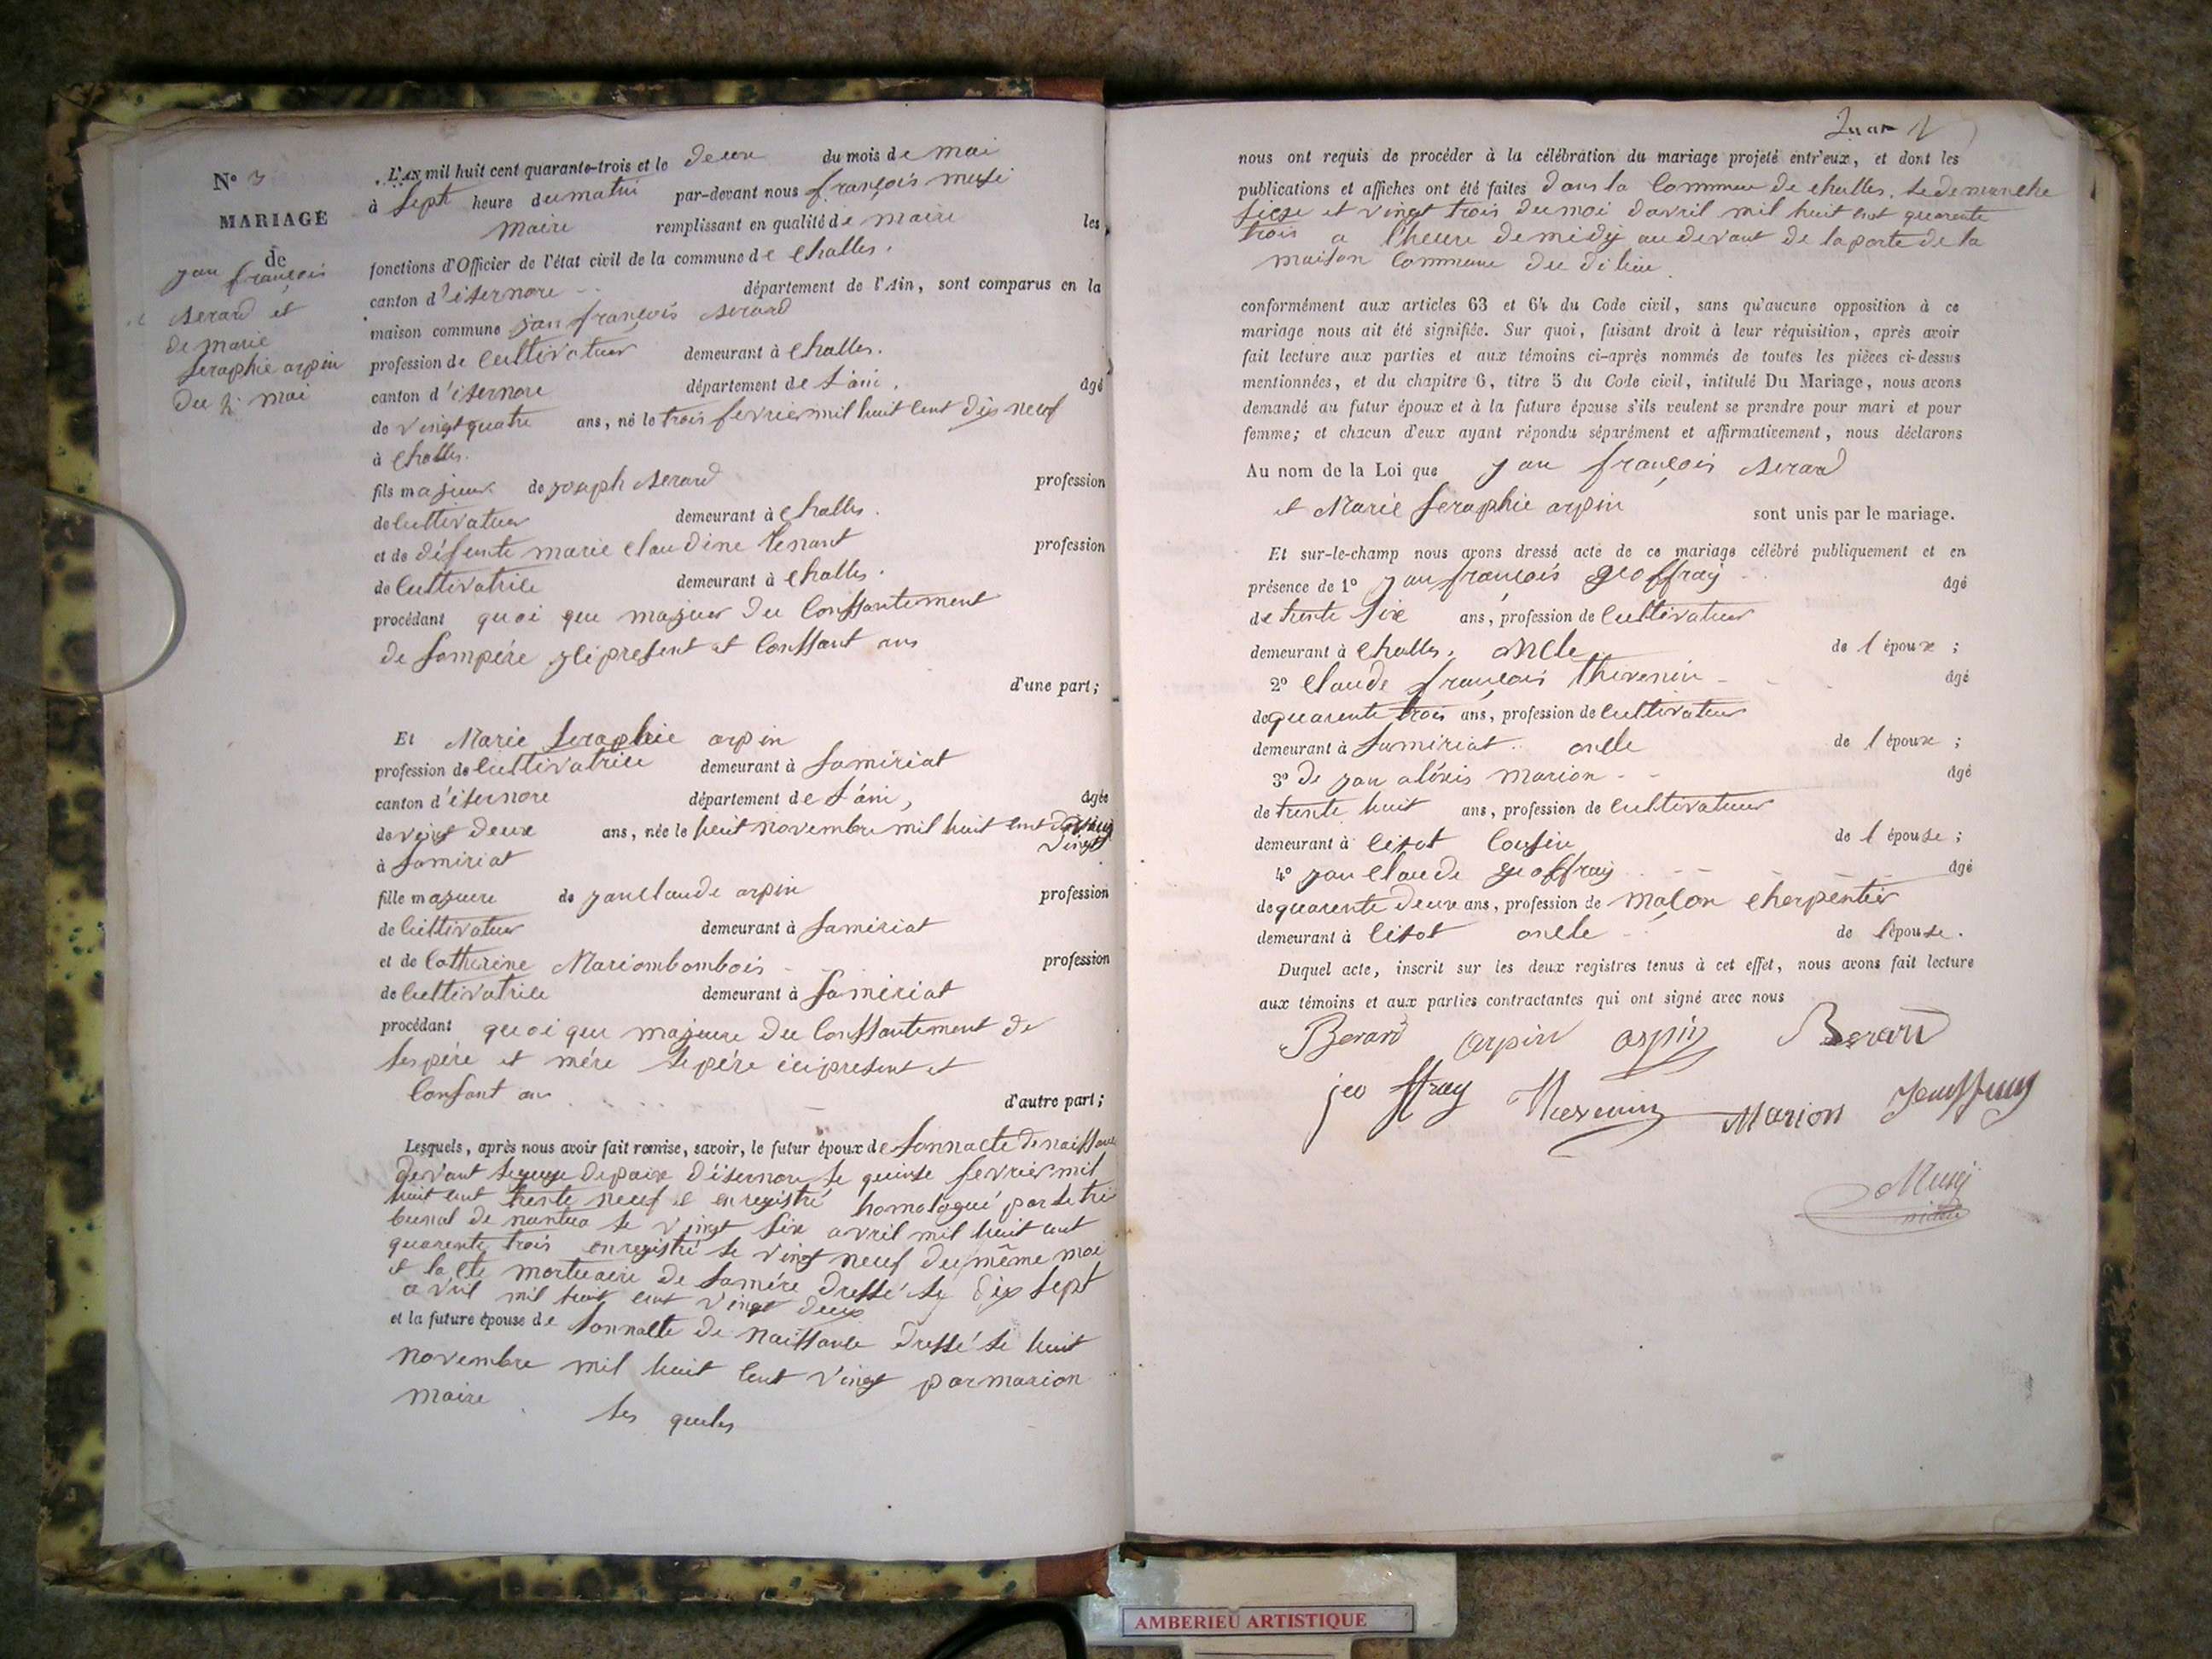 N° 3
MARIAGE
de
jan françois
Berard et
de marie
seraphie arpin
du 2 mai
L'AN mil huit cent quarante-trois et le deux du mois de mai
à sept heure du matin par-devant nous françois
maire remplissant en qualité de maire les
fonctions d'Officier de l'état civil de la commune de challes.
canton d'isernore département de l'Ain, sont comparus en la
maison commune jan françois Berard
profession de cultivateur demeurant à challes.
canton d'isernore département de l'ain, âgé
de vingt quatre ans, né le trois fevrier mil huit cent dix neuf
à challes.
fils majeur de joseph Berard profession
de cultivateur demeurant à challes.
et de défunte marie claudine tenant profession
de cultivatrice demeurant à challes.
procédant quoi que majeur du conssantement
de sompére present et conssant
d'une part;
Et Marie seraphie arpin
profession de cultivatrice demeurant à samiriat
canton d'isernore département de l'ain, âgée
de vingt deux ans, née le huit novembre mil huit cent
vingt
à samiriat
fille majeure de jan claude arpin profession
de cultivateur demeurant à samiriat
et de catherine Mariombombois profession
de cultivatrice demeurant à samiriat
procédant quoi que majeure du conssantement de
ses pére et mére le pére ici present et
consant
d'autre part;
Lesquels, après nous avoir fait remise, savoir, le futur époux de sonnacte de naissance
devant le juge de paix d'isernore le quinse fevrier mil
huit cent trente neuf et enregistré homologué par le tri
bunal de nantua le vingt six avril mil huit cent
quarente trois enregistré le vingt neuf du même moi
et lacte mortuaire de samére dressé le dix sept
avril mil huit cent vingt deux
et la future épouse de sonnacte de naissance dressé le huit
novembre mil huit cent vingt par marion
maire les queles
nous ont requis de procéder à la célébration du mariage projeté entr'eux, et dont les
publications et affiches ont été faites dans la commune de challes. le demanche
siese et vingt trois du moi d'avril mil huit cent quarente
trois a l'heure de midy au devant de la porte de la
maison commune du di lieu.
conformément aux articles 63 et 64 du Code civil, sans qu'aucune opposition à ce
mariage nous ait été signifiée. Sur quoi, faisant droit à leur réquisition, après avoir
fait lecture aux parties et aux témoins ci-après nommés de toutes les pièces ci-dessus
mentionnées, et du chapitre 6, titre 5 du Code civil, intitulé Du Mariage, nous avons
demandé au futur époux et à la future épouse s'ils veulent se prendre pour mari et pour
femme; et chacun d'eux ayant répondu séparément et affirmativement, nous déclarons
Au nom de la Loi que jan françois Berard
et Marie seraphie arpin sont unis par le mariage.
Et sur-le-champ nous avons dressé acte de ce mariage célébré publiquement et en
présence de 1° jan françois geoffray âgé
de trente six ans, profession de cultivateur
demeurant à challes. oncle de l époux ;
2° claude françois thevenin âgé
de quarente trois ans, profession de cultivateur
demeurant à samiriat oncle de l époux ;
3° de jan aléxis marion âgé
de trente huit ans, profession de cultivateur
demeurant à cisot cousin de l épouse ;
4° jan claude geoffray âgé
de quarente deux ans, profession de maçon cherpentier
demeurant à cisot oncle de l'épouse.
Duquel acte, inscrit sur les deux registres tenus à cet effet, nous avons fait lecture
aux témoins et aux parties contractantes qui ont signé avec nous
Berard arpin arpin Berard
jeoffray Thevenin Marion
maire
AMBERIEU ARTISTIQUE